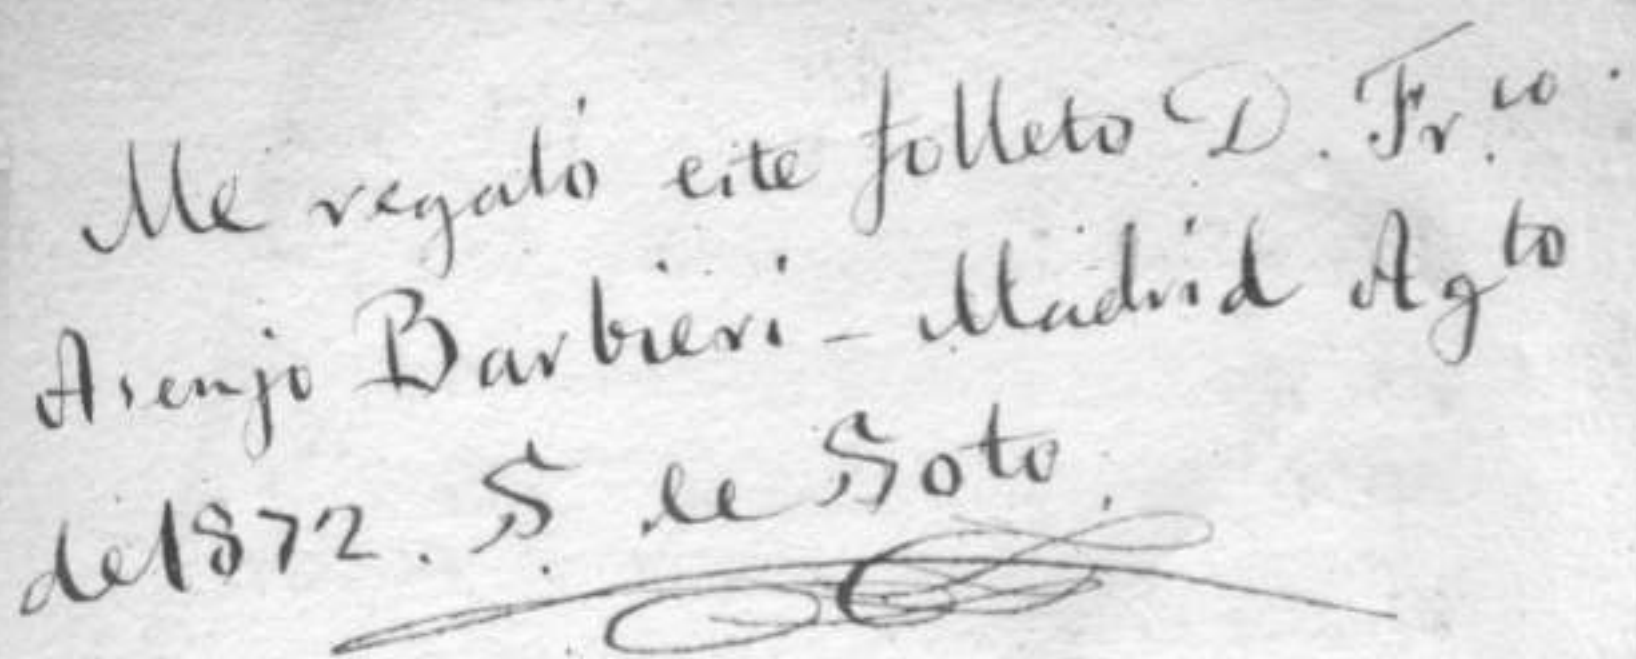 Me regaló este folleto D. Fr.co.
Asenjo Barbieri - Madrid Agto
de 1872. S. de Soto.